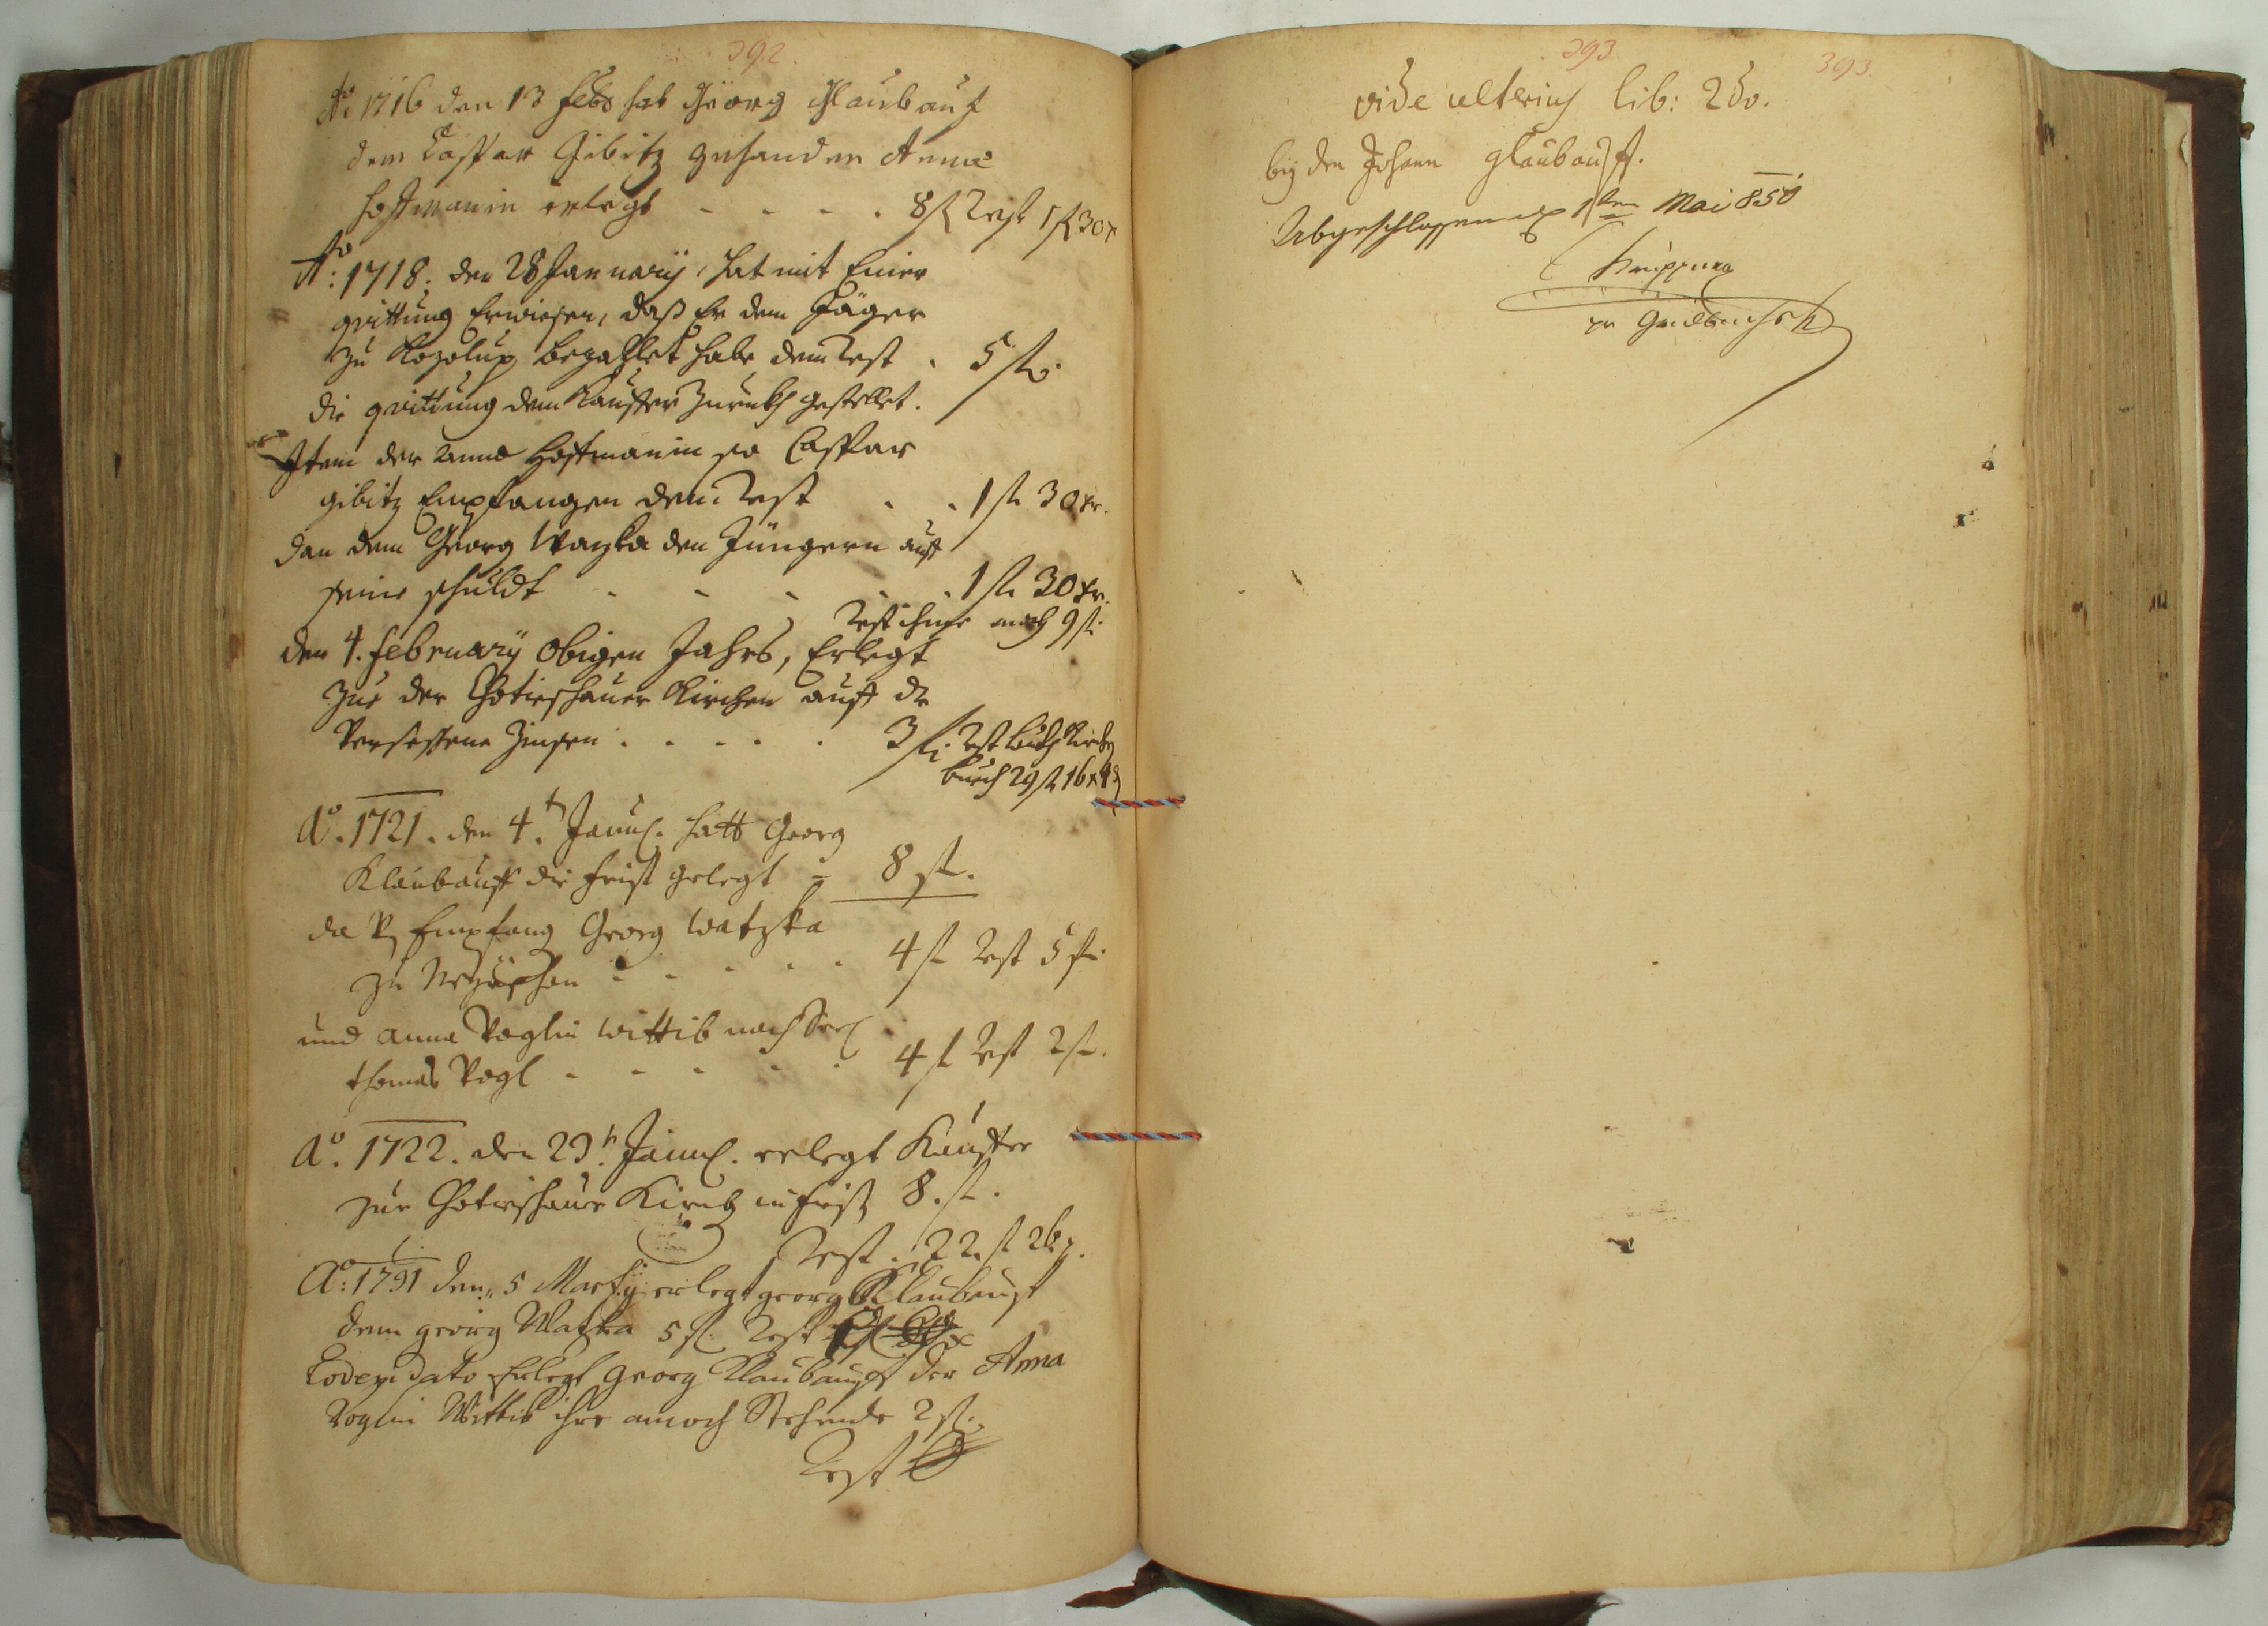 392.
Ao 1716 den 13 Febr hat Georg Glaubauf
dem Caspar Gibitz zuhanden Anna
Hoffmanin erlegt - - - . 8 fl Rest 1 fl 30 x
Ao: 1718. den 28 January, hat mit Einer
qvittung Erwiesen, daß Er dem Jäger
zu Kozolup bezahlet habe, dem Rest . 5 fl.
die qvittung dem Kauffer zurukh gestellet.
Item der Anna Hoffmanin so Caspar
gibitz Empfangen dem Rest . . 1 fl 30 xr.
dan dem Georg Wazka den Jüngern auff
seine schuldt - - - . 1 fl 30 xr.
Rest ihme noch 9 fl:
den 4. February obigen Jahrs, Erlegt
zue der Chotieschauer Kirchen auff die
Versessene Zinsen . . . . . 3 fl: Rest
29 fl 16 x
Ao. 1721. den 4.t Januar. hatt Georg
Klaubauff die frist gelegt = 8 fl.
Empfang Georg Watzka
zu - - - - 4 fl Rest 5 fl:
und Anna Voglin Wittib nach
Thomas Vogl - - - - . 4 fl Rest 2 fl.
Ao. 1722. den 23.t Januar. erlegt Kauffer
zur Chotieschauer Kirch in frist 8. fl.
Rest . 22 fl
Ao: 1731 den 5 Marty erlegt georg Klaubauf
dem georg Watzka 5 fl. Rest
Eodem dato Erlegt Georg Klaubauf der Anna
Voglin Wittib ihre annoch Stehende 2 fl.
Rest
393
393
vide ulterius lib: 2do.
bey den Johann Glaubauff.
Abgeschlossen 1ten Mai 850